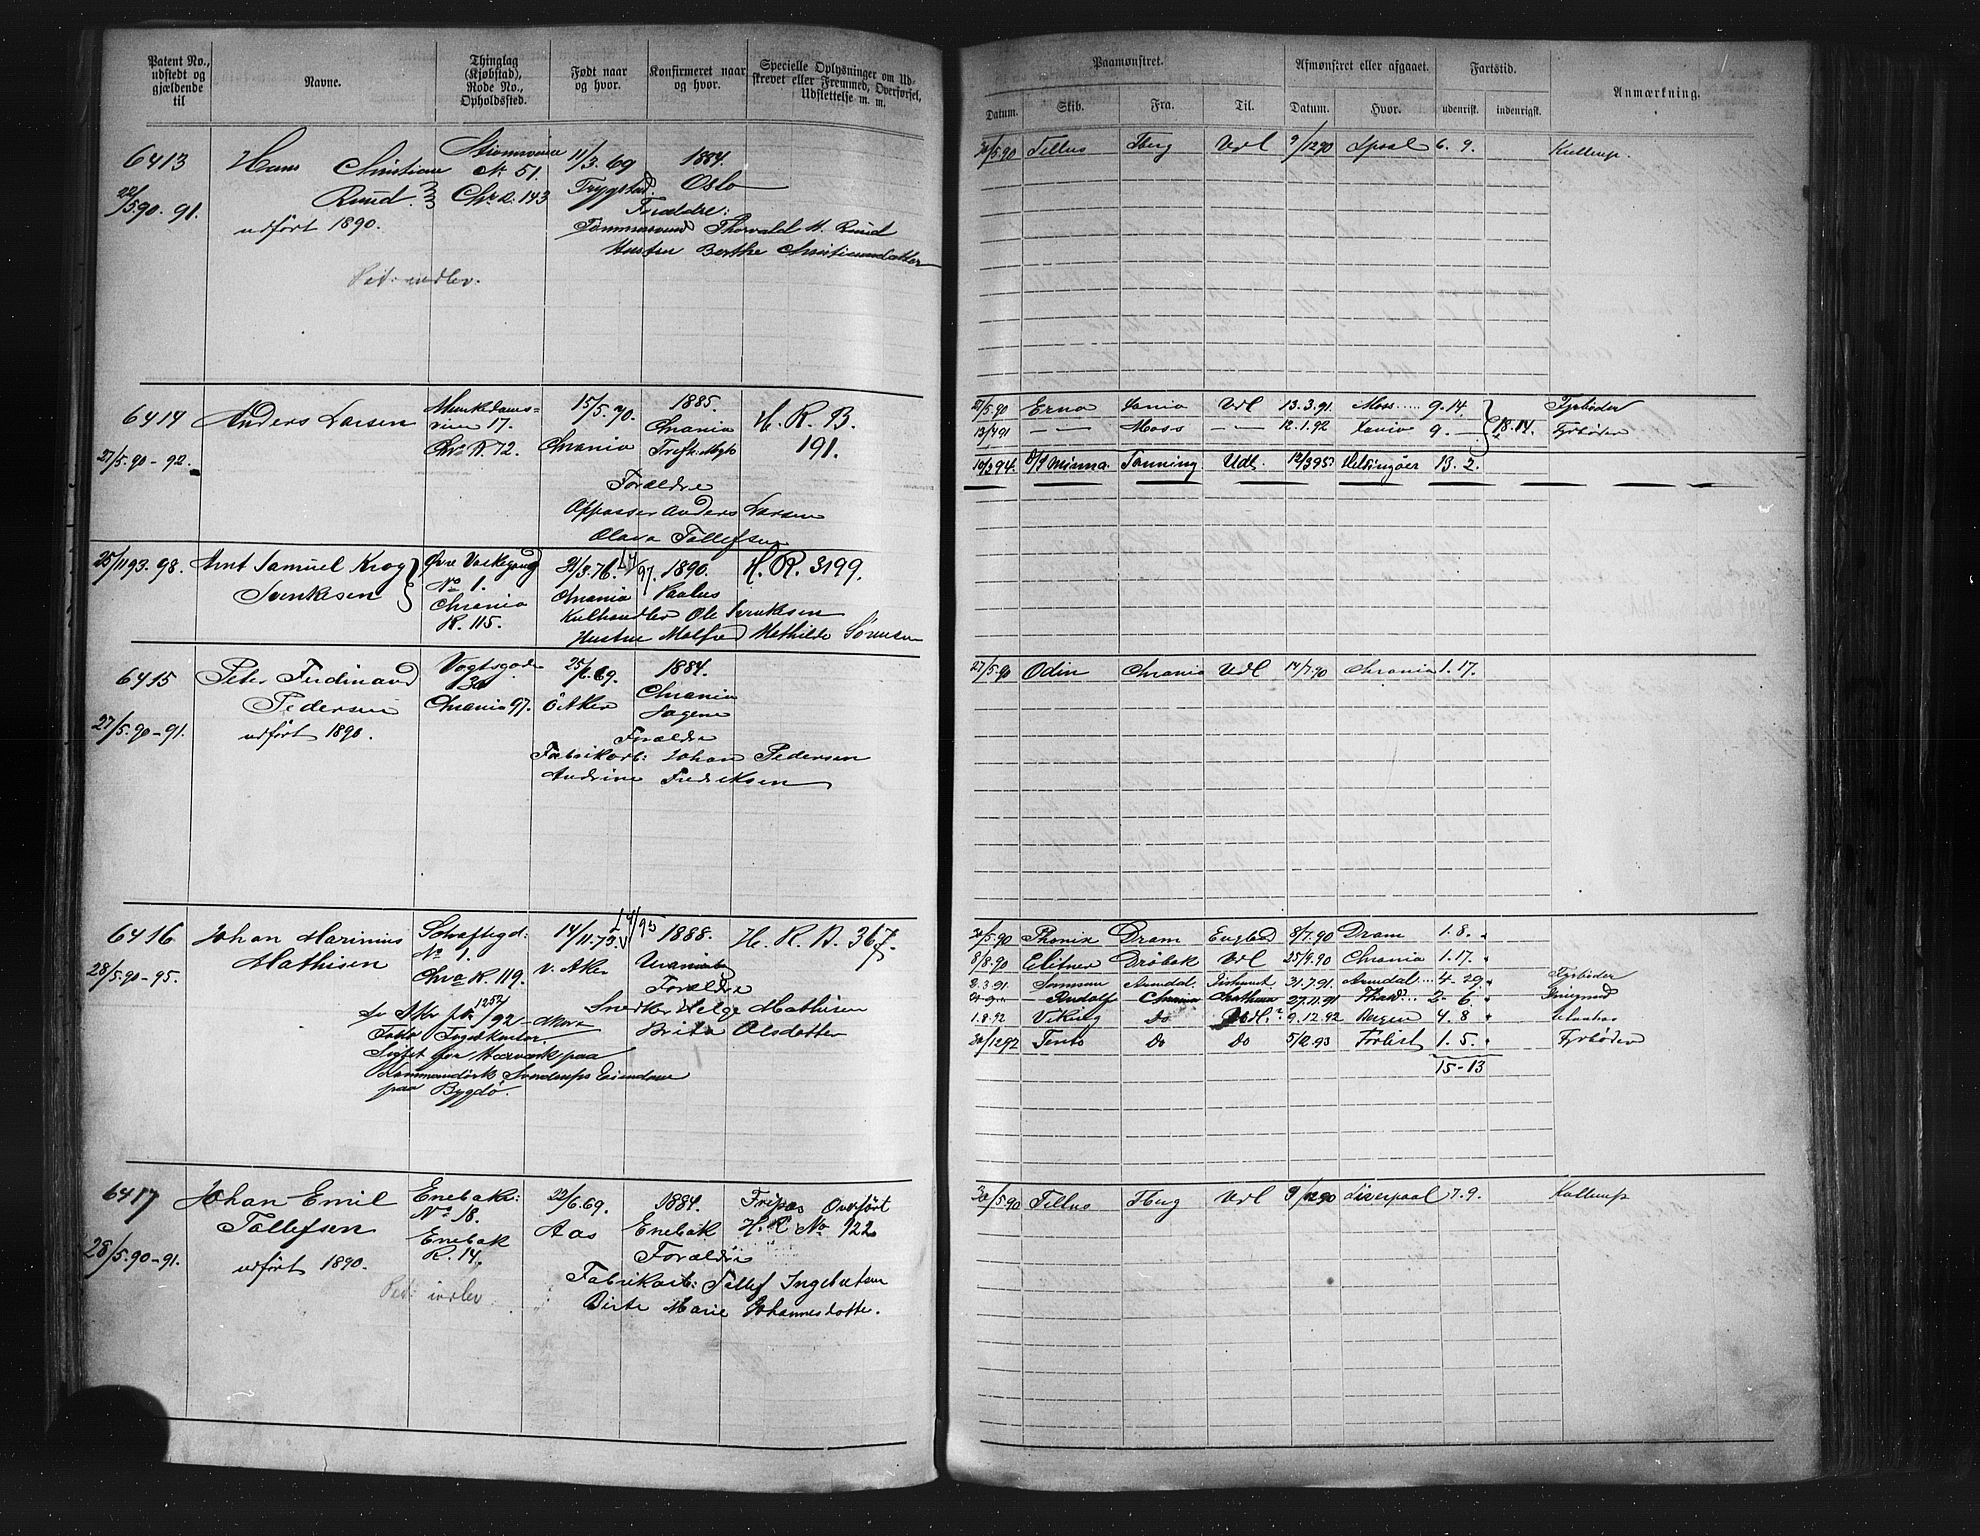 Patent No., udstedt og gjældende til
Navne.
Thinglag (Kjøbstad), Rode No., Opholdsted.
Født naar og hvor.
Konfirmeret naar og hvor.
Specielle Oplysninger om Udskrevet eller Fremmed, Overførsel, Udslettelse m. m.
6413 Hans Christian 11/3.69 1884.
No 51.
22/5.90-91. Ruud. Chr.a. 143 Trygstad. Oslo
udført 1890. Forældre:
Tømmermand Thorvald H. Ruud
Hustru Berthe Christiansdatter
Pat: indlev.
6414 Anders Larsen Munkedams= 15/5.70. 1885. H. R. B.
veien 17. Chrania 191.
27/5.90-92. Chr.a R. 72. Chrania Trefk. Mgh
Forældre
Oppasser Anders Larsen
Olava Tollefsen
25/11 93.98. Arnt Samuel Krog 31/3.76. 1890. H. R. 3199.
Svenksen No 1. Chrania Paulus
Chrania Kulhandler Ole Svenksen
R. 115. Hustru Malfred Mathilde Sørensen
6415 Peter Ferdinand Vogtsgade 25/6.69. 1884.
Pedersen Chrania 97. Ö Aker Chrania
27/5.90-91. udført 1890. Sagene
Forældre
Fabrikarb: Johan Pedersen
Andrine Fredriksen
6416 Johan Marinius 14/11.73. 1888. H. R. A. 367.
Mathisen No 1.
28/5.90-95. Chr.a R. 119. V. Aker Urania
Forældre
Snedker Helge Mathisen
Brita Olsdatter
Sigtet for Hærværk paa
Eiendom
paa Bygdö.
6417 Johan Emil Enebak: 22/6.69. 1884. Fripas Overført
Tollefsen No 18. Aas Enebak H. R. No 122
28/5.90-91. Enebak Forældre
udført 1890. R. 14. Fabrikarb: Tollef Ingebretsen
Pat: indlev. Birte Marie Johannesdatter.
Paamønstret.
Afmønstret eller afgaaet.
Fartstid.
Anmærkning.
Datum. Skib. Fra. Til. Datum. Hvor. udenrigsk. indenrigsk.
30/5.90 Tellus Fberg Udl 9/12 90 6. 9. Kullemp.
27/5.90 Erna Xania Udl 13.3.91. Moss 9.14 Fyrbøder
13/4 91 — — Moss — — 12.1.92 Xania 9. — 18.14. Fyrbøder
10/3 94. D/S Minna Tønning Udl. 12/3 95 Helsingöer 13. 2.
27/5.90 Odin Chrania Udl 14/7.90 Chrania 1.17.
30/5.90 Phønix Dram England 8/7.90 Dram 1.8. "
8/8.90 Drøbak Udl 25/9.90 Chrania 1.17. "
2.3.91. Samson Arendal. 31.7.91. Arendal 4-29. " Fyrbøder
Rudolf Chrania 27.11.91 2-6. "
1.8.92 Viking Do Udl. 9.12.92 Bergen 4.8 "
30/12 92 Tento Do Do 5/12.93 Forlist 1.5. " Fyrbøder
15-13
30/5.90 Tellus Fberg Udl 9/12 90 Liverpool 7.9. Kullemp